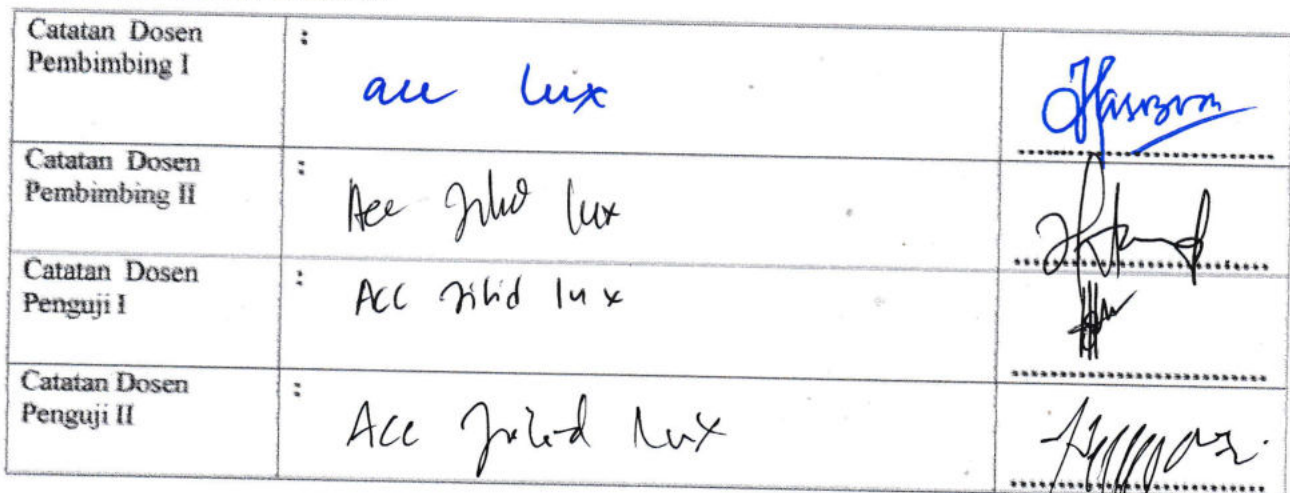 Catatan Dosen
Pembimbing I
:
acc lux
Catatan Dosen
Pembimbing II
:
Acc Jilid lux
Catatan Dosen
Penguji I
:
ACC Jilid lux
Catatan Dosen
Penguji II
:
Acc Jilid Lux